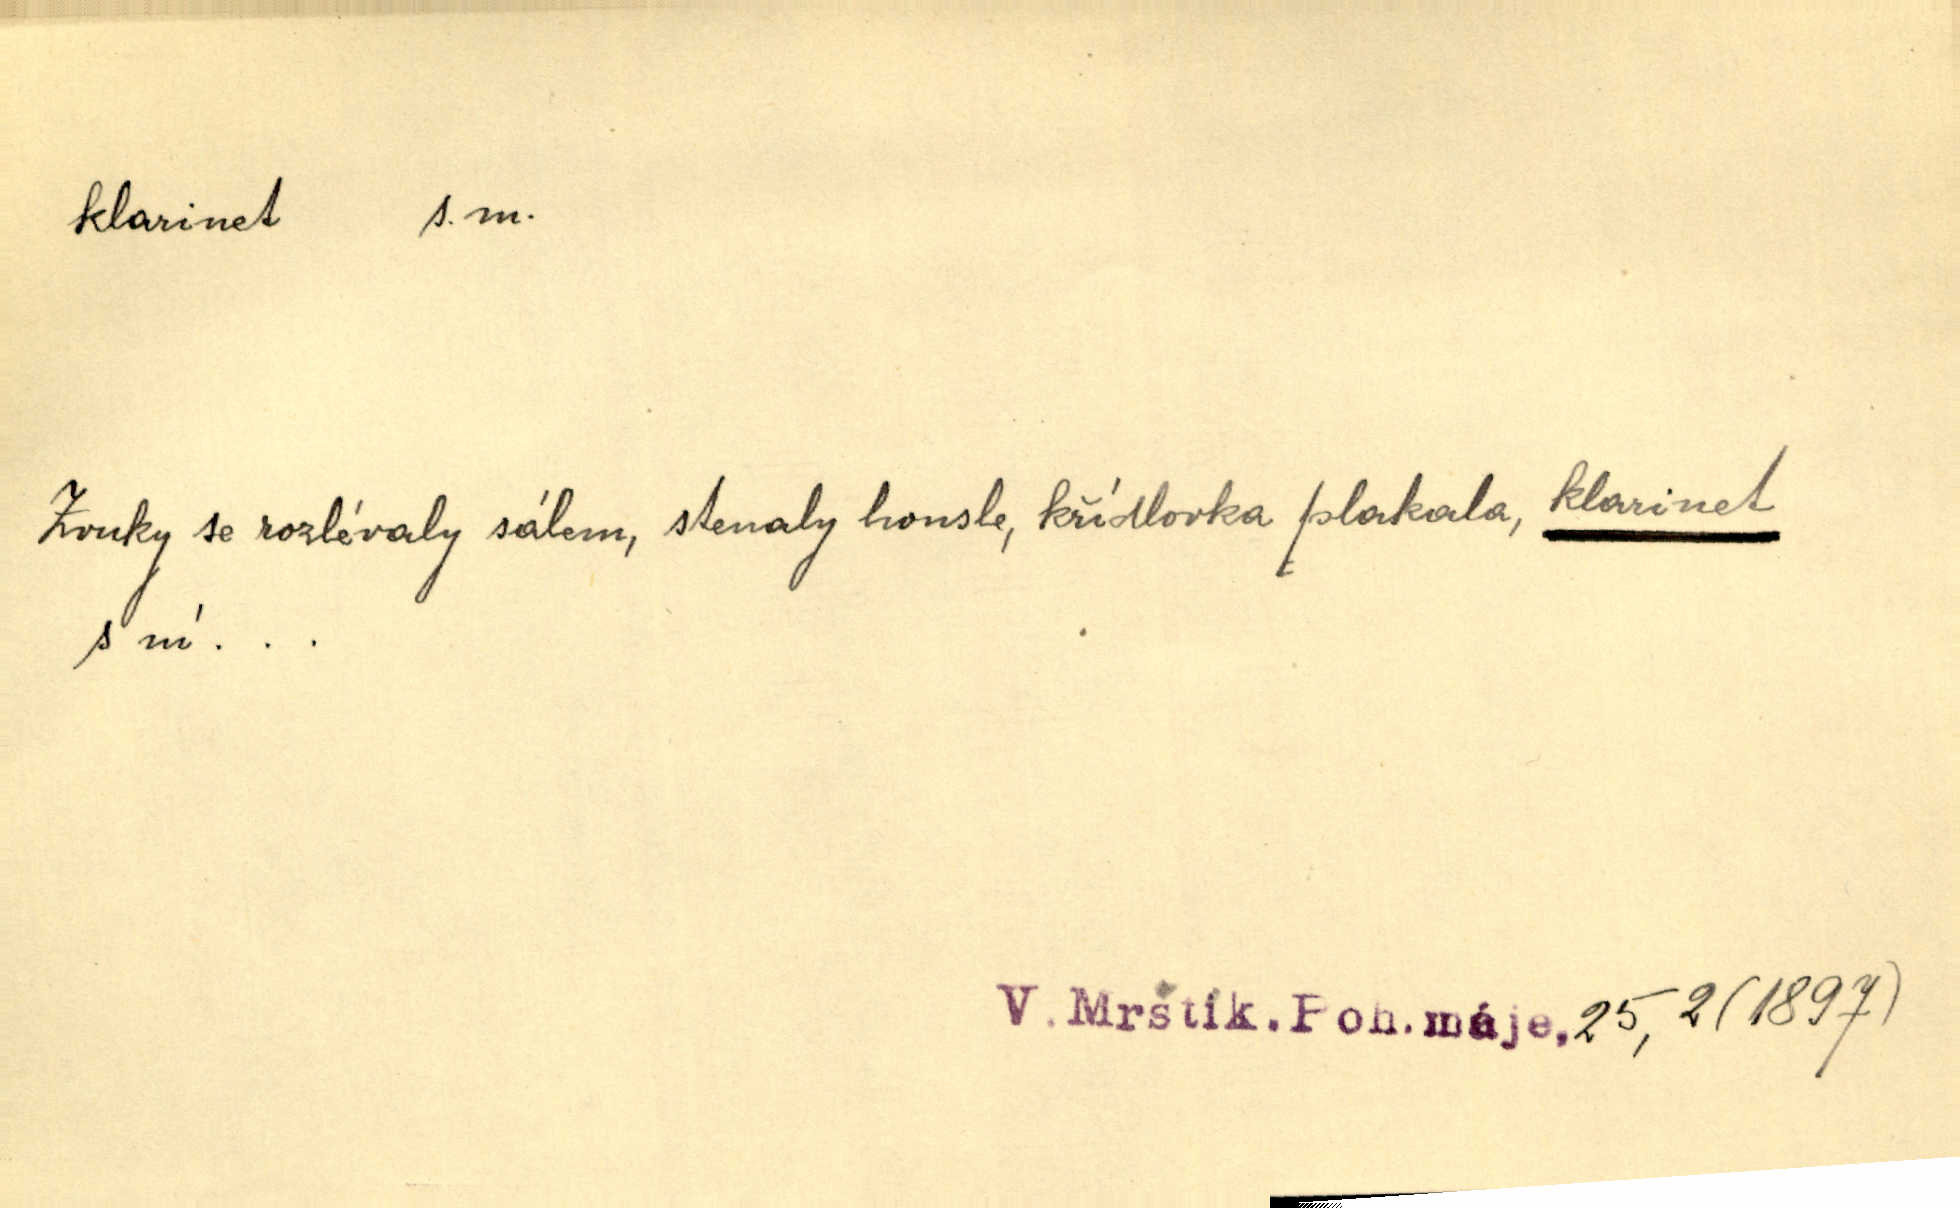 klarinet s. m.
Zvuky se rozlévaly sálem, stenaly housle, křídlovka plakala, klarinet
s ní . . .
V. Mrštík. Poh. máje, 25, 2 (1897)